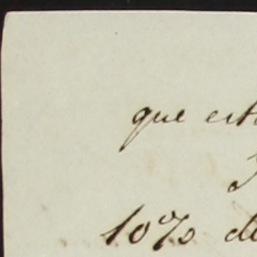 que est
10% de